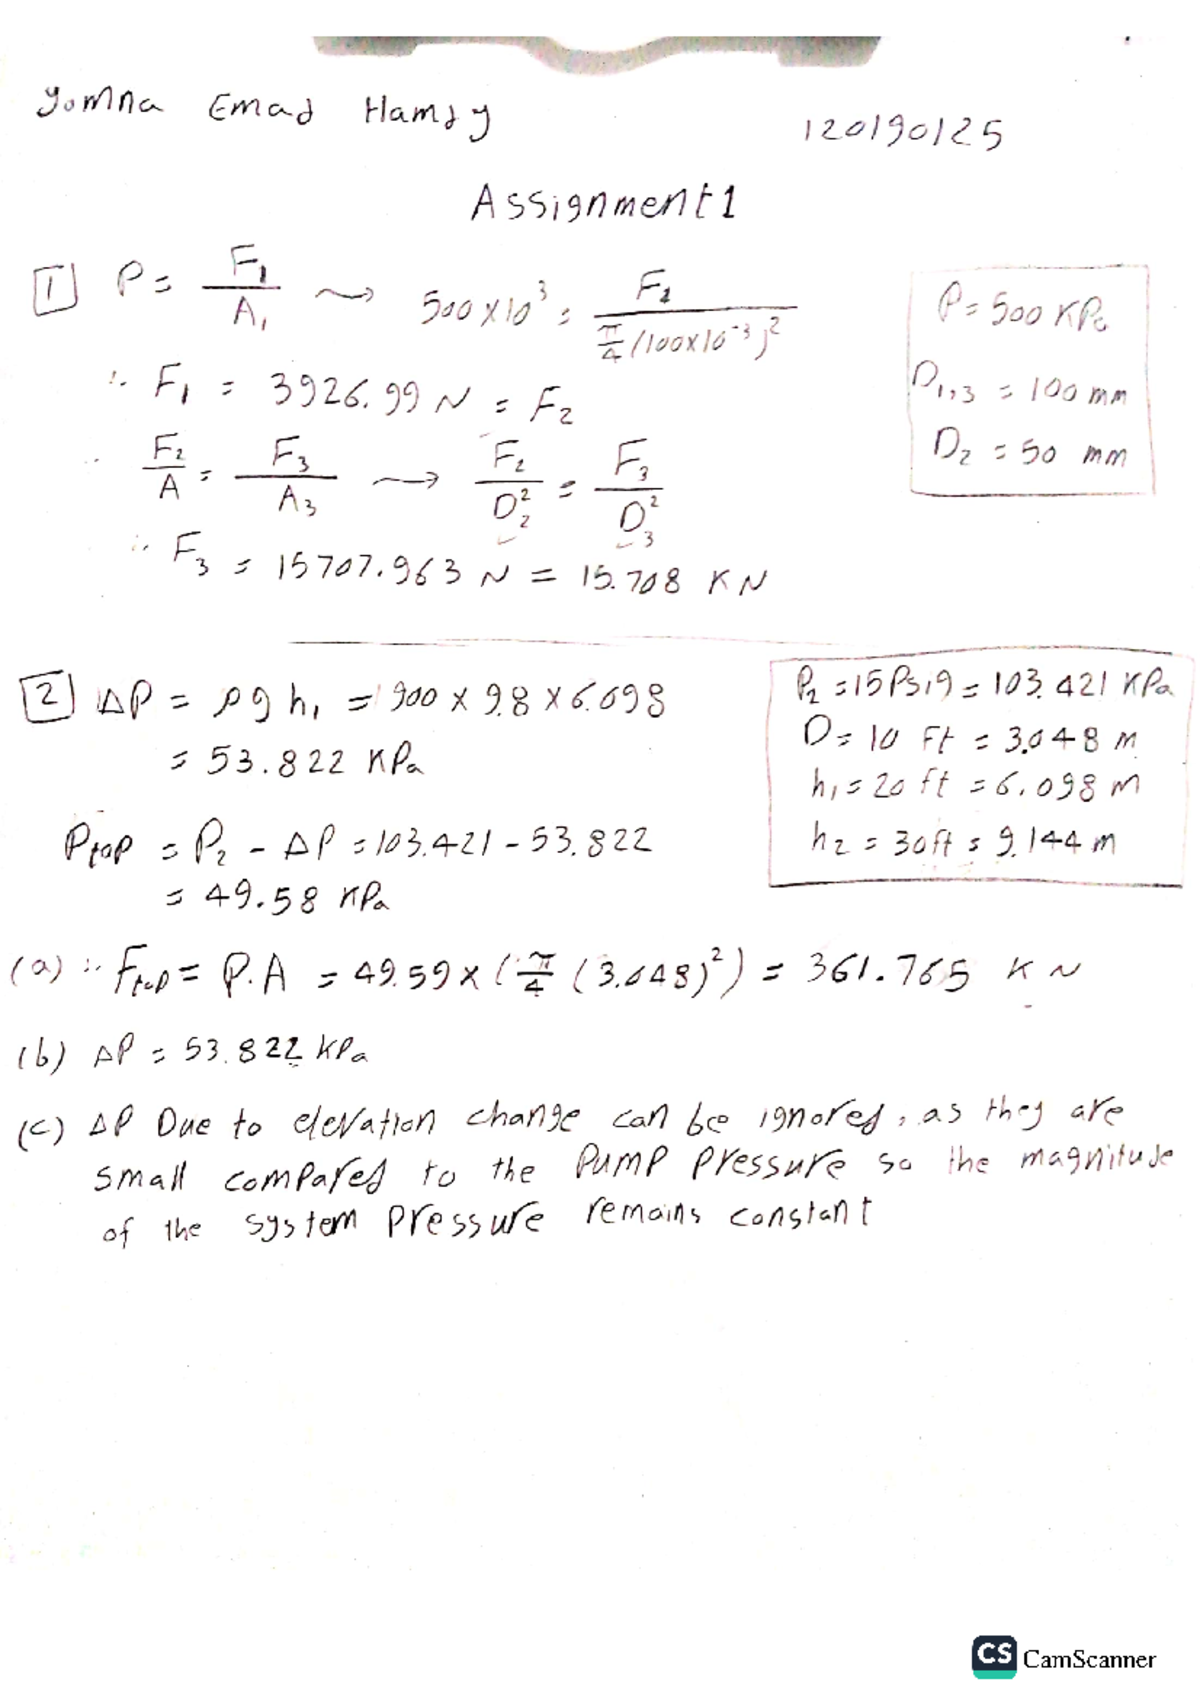 Yomna Emad Hamdy 120190125
Assignment 1
1 P = F₁/A₁ ⟿ 500x10³ = F₁/(π/4 (100x10⁻³)²)
∴ F₁ = 3926.99 N = F₂
∴ F₂/A = F₃/A₃ ⟿ F₂/D₂² = F₃/D₃²
∴ F₃ = 15707.963 N = 15.708 KN
P = 500 KPa
D₁,₃ = 100 mm
D₂ = 50 mm
2 ΔP = ρ g h₁ = 900 x 9.8 x 6.098
= 53.822 KPa
Ptop = P₂ - ΔP = 103.421 - 53.822
= 49.58 KPa
P₂ = 15 Psig = 103.421 KPa
D = 10 Ft = 3.048 m
h₁ = 20 ft = 6.098 m
h₂ = 30 ft = 9.144 m
(a) ∴ Ftop = P.A = 49.59 x (π/4 (3.048)²) = 361.765 KN
(b) ΔP = 53.822 kPa
(c) ΔP Due to elevation change can be ignored, as they are
small compared to the Pump Pressure so the magnitude
of the system Pressure remains constant
CS CamScanner